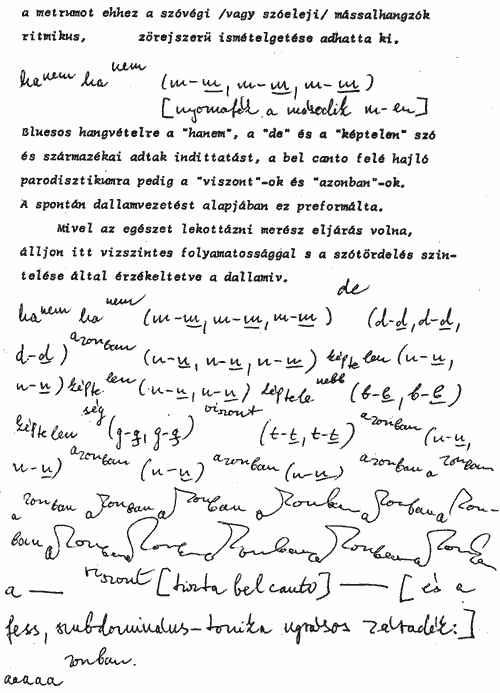 a metrumot ehhez a szóvégi /vagy szóeleji/ mássalhangzók
ritmikus, zörejszerű ismételgetése adhatta ki.
hanem hanem (m-m, m-m, m-m)
[nyomaték a második m-en]
Bluesos hangvételre a "hanem", a "de" és a "képtelen" szó
és származékai adtak indittatást, a bel canto felé hajló
parodisztikumra pedig a "viszont"-ok és "azonban"-ok.
A spontán dallamvezetést alapjában ez preformálta.
Mivel az egészet lekottázni merész eljárás volna,
álljon itt vizszintes folyamatossággal s a szótördelés szin-
telése által érzékeltetve a dallamiv.
hanem hanem (m-m, m-m, m-m) de (d-d, d-d,
d-d) azonban (n-n, n-n, n-n) képtelen (n-n,
n-n) képtelen (n-n, n-n) képtelenebb (b-b, b-b)
képtelenség (g-g, g-g) viszont (t-t, t-t) azonban (n-n,
n-n) azonban (n-n) azonban (n-n) azonban azonban
azonban azonban azonban azonban azonban azon-
ban azonban azonban azonban azonban azonban
a — viszont [tiszta bel canto] — [és a
fess, szubdomináns-tonika ugrásos záradék:]
aaaaa zonban.